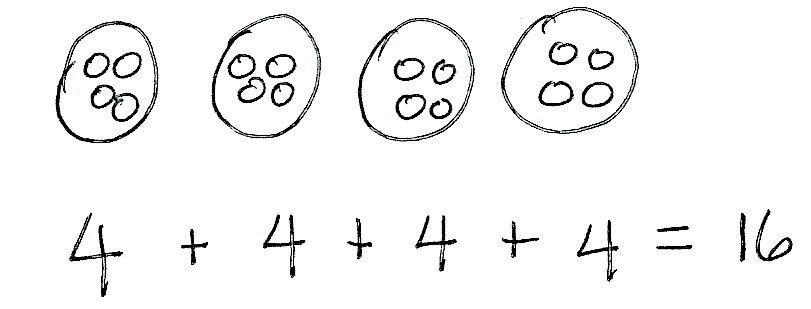 4 + 4 + 4 + 4 = 16